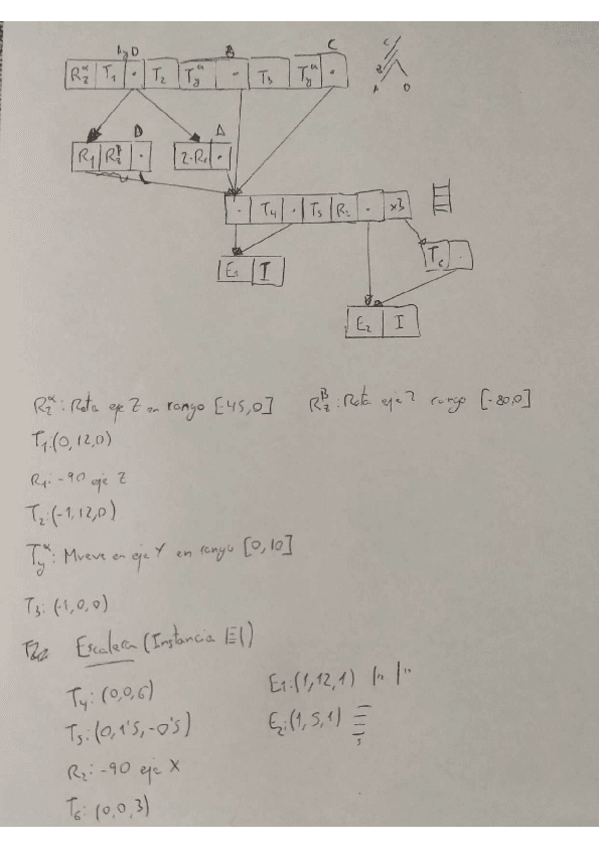 A y D B C
R_z^α T_1 · T_2 T_y^α · T_3 T_y^α ·
C
B
A D
D A
R_1 R_z^β · 2·R_1 ·
· T_4 · T_5 R_2 · x3
E_1 I
T_6 ·
E_2 I
R_z^α: Rota eje Z en rango [-45,0] R_z^β: Rota eje Z rango [-80,0]
T_1:(0,12,0)
R_1: -90 eje Z
T_2:(-1,12,0)
T_y^α: Mueve en eje Y en rango [0,10]
T_3: (-1,0,0)
Escalera (Instancia E1)
T_4: (0,0,6) E_1:(1,12,1)
T_5: (0,1'5,-0'5) E_2:(1,5,1)
R_2: -90 eje X
T_6: (0,0,3)